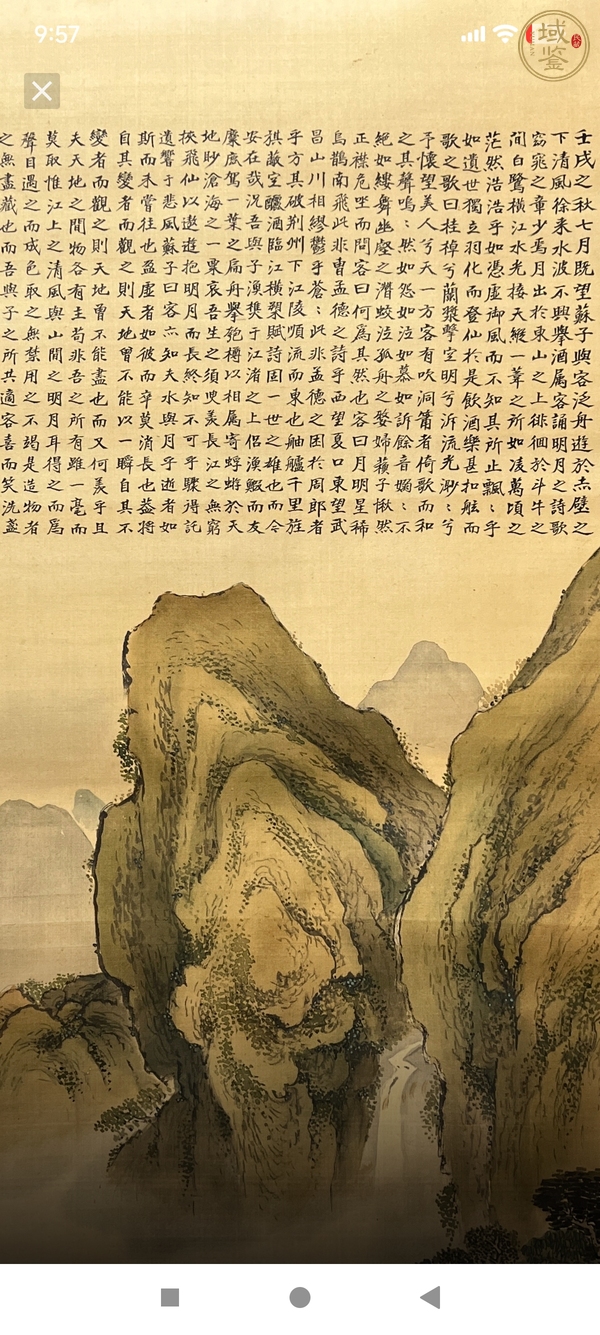 9:57
域鉴
壬戌之秋七月既望蘇子與客泛舟遊於赤壁之
下清風徐來水波不興舉酒屬客誦明月之詩歌
窈窕之章少焉月出於東山之上徘徊於斗牛之
間白鷺橫江水光接天縱一葦之所如凌萬頃之
茫然浩浩乎如憑虛御風而不知其所止飄〻乎
如遺世獨立羽化而登仙於是飲酒樂甚扣舷而
歌之歌曰桂棹兮蘭槳擊空明兮泝流光渺〻兮
予懷望美人兮天一方客有吹洞簫者倚歌而和
之其聲嗚〻然如怨如泣如慕如訴餘音嫋〻不
絕如縷舞幽壑之潛蛟泣孤舟之嫠婦蘇子愀然
正襟危坐而問客曰何爲其然也客曰月明星稀
烏鵲南飛此非曹孟德之詩乎西望夏口東望武
昌山川相繆鬱乎蒼〻此非孟德之困於周郎者
乎方其破荊州下江陵順流而東也舳艫千里旌
旗蔽空釃酒臨江橫槊賦詩固一世之雄也而今
安在哉況吾與子漁樵于江渚之上侶漁鰕而友
麋鹿駕一葉之扁舟舉匏樽以相属寄蜉蝣於天
地眇滄海之一粟哀吾生之須臾羨長江之無窮
挾飛仙以遨遊抱明月而長終知不可乎驟得託
遺響于悲風蘇子曰客亦知夫水與月乎逝者如
斯而未嘗往也盈虛者如彼而卒莫消長也蓋將
自其變者而觀之則天地曾不能以一瞬自其不
變者而觀之則天地曾不能盡也而又何羨乎且
夫天地之間物各有主苟非吾之所有雖一毫而
莫取惟江上之清風與山間之明月耳得之而爲
聲目遇之而成色取之無禁用之不竭是造物者
之無盡藏也而吾與子之所共適客喜而笑洗盞